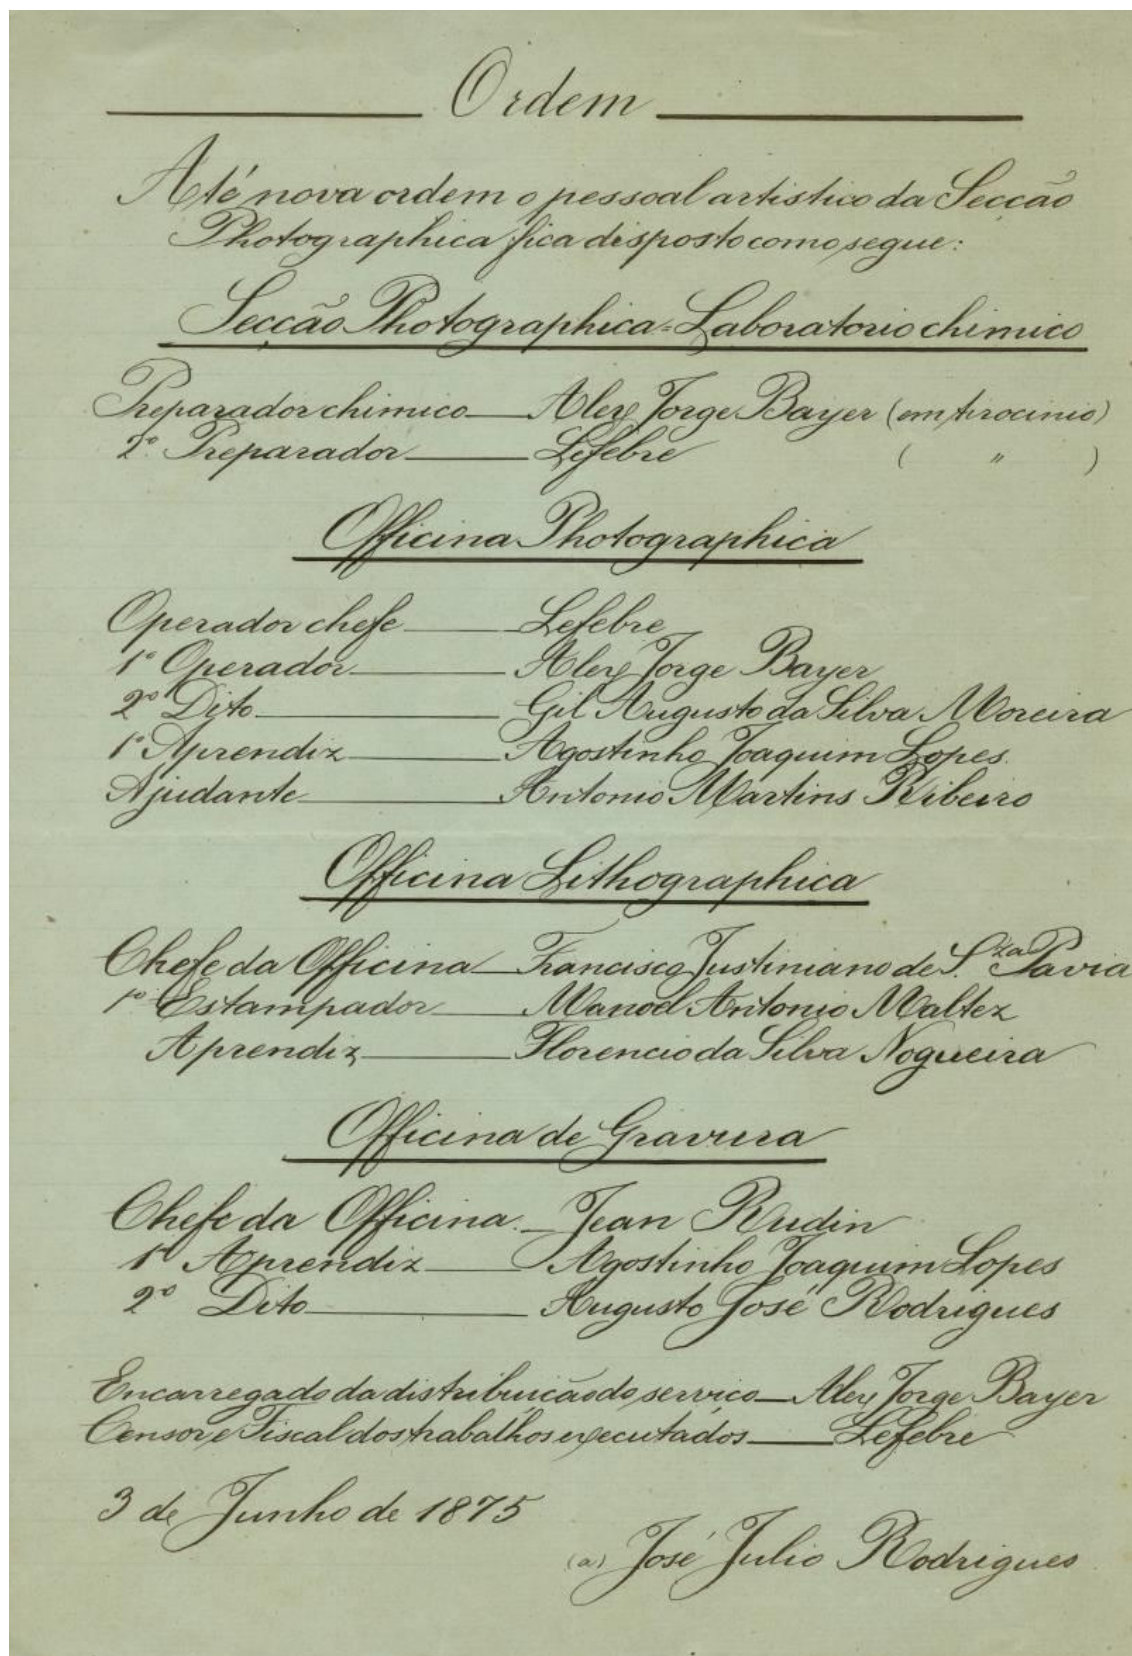 Ordem
Até nova ordem o pessoal artistico da Secção
Photographica fica disposto como segue:
Secção Photographica=Laboratorio chimico
Preparador chimico Alex Jorge Bayer (em tirocinio)
2º Preparador Lefebre ( " )
Officina Photographica
Operador chefe Lefebre
1º Operador Alex Jorge Bayer
2º Dito Gil Augusto da Silva Moreira
1º Aprendiz Agostinho Joaquim Lopes.
Ajudante Antonio Martins Ribeiro
Officina Lithographica
Chefe da Officina Francisco Justiniano de S.za Pavia
1º Estampador Manoel Antonio Maltez
Aprendiz Florencio da Silva Nogueira
Officina de Gravura
Chefe da Officina. Jean Rudin
1º Aprendiz Agostinho Joaquim Lopes
2º Dito Augusto José Rodrigues
Encarregado da distribuição do serviço Alex Jorge Bayer
Censor e Fiscal dos trabalhos executados Lefebre
3 de Junho de 1875
(a) José Julio Rodrigues